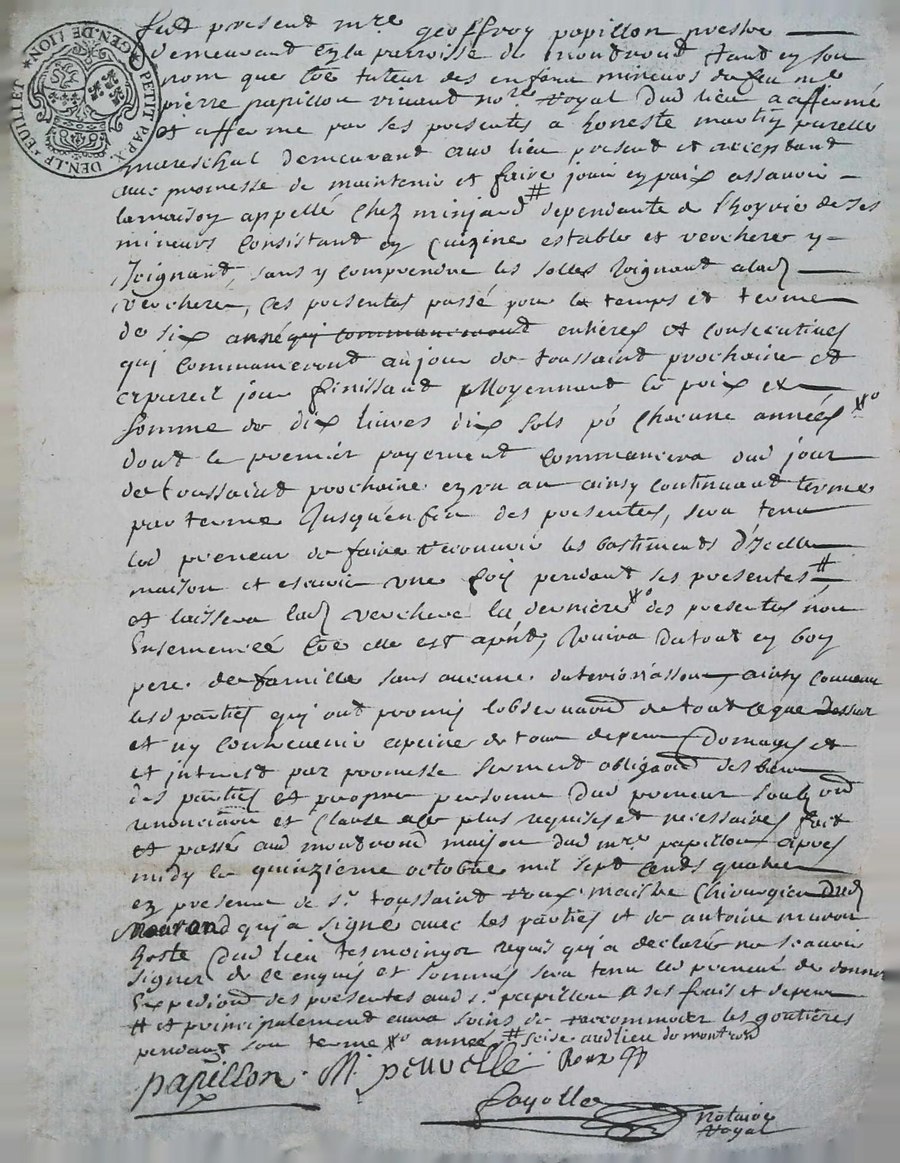 GEN. DE LION ★ PETIT PAP. X. DEN. LE FEUILLET ★
fut present mre geoffroy papillon prestre
demeurant en la parroisse de montrond tant en son
nom que tuteur des enfans mineurs du feu me
pierre papillon vivant nore royal dud lieu a affermé
et afferme par ses presentes a honeste martin peuvelle
mareschal demeurant aud lieu present et acceptant
avec promesse de maintenir et faire jouir en paix assavoir
la maison appellé chez minjard # dependante de l'hoyrie de ses
mineurs consistant en cuizine estable et verchere y
joignant, sans y comprendre les solles joignant a lad
verchere, ces presentes passé pour le temps et terme
de six année qui commanceront entieres et consecutives
qui commanceront au jour de toussaint prochaine et
a pareil jour finissant moyennant le prix et
somme de dix livres dix sols pō chacune années xo
dont le premier payement commancera aud jour
de toussaint prochaine en un an ainsy continuant terme
par terme jusqu'en fin des presentes, sera tenu
led preneur de faire recouvrir les bastiments d'icelle
maison et escurie une fois pendant ses presentes #
et laissera lad verchere la derniere xo des presentes non
ensemencé cōe elle est apñt, jouira du tout en bon
pere de famille sans aucune deterioriasson ainsy convenu
lesd parties qui ont promis l'observaōn de tout ce que dessus
et ny contrevenir a peine de tous depens domages et
et interest par promesse serment obligaōn des biens
des parties et propre personne dud preneur soubz
renonciaōn et clause plus requises et necessaires fait
et passé aud montrond maison dud mre papillon apres
midy le quinzième octobre mil sept cents quatre
en presence de sr toussaint roux maistre chirurgien dud
qui a signé avec les parties et de antoine
hoste dud lieu tesmoings requis qui a declaré ne scavoir
signer de ce enquis et sommés sera tenu led preneur de donner
expediōn des presentes aud sr papillon a ses frais et depens
# et principalement aura soins de raccommoder les goutières
pendant son terme xo année # seize aud lieu de montrond
papillon. M peuvelle Roux
fayolle notaire
royal